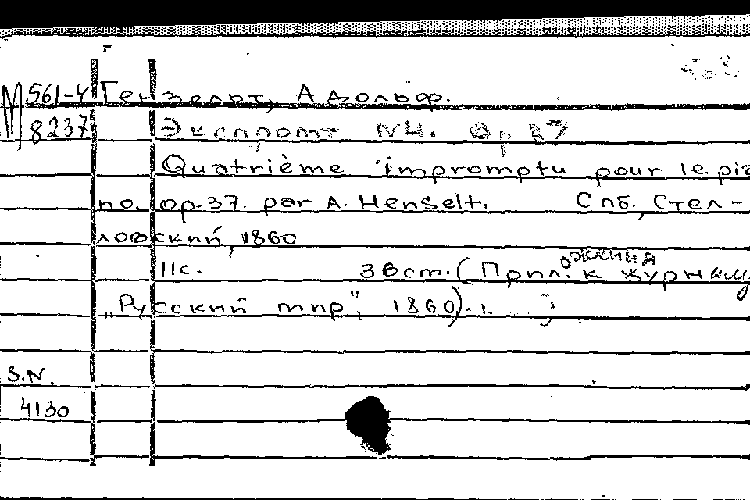 М 561-4 Гензельт, Адольф.
8237 Экспромт №4. Op 37
Quatrième impromptu pour le pia
no. op.37. par A. Henselt. Спб, Стел-
ловский, 1860
11с. 38см. (Приложения к журналу
„Русский мир", 1860).
S.N.
4130